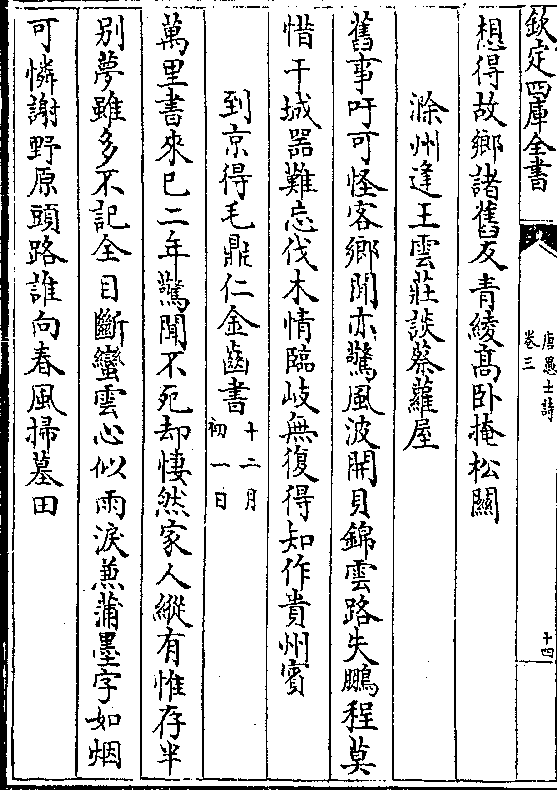 欽定四庫全書
唐愚士詩
卷三
十四
想得故鄉諸舊友青綾髙卧掩松關
滁州逢王雲莊談蔡蘿屋
舊事吁可怪客鄉聞亦驚風波開貝錦雲路失鵬程莫
惜干城器難忘伐木情臨岐無復得知作貴州賔
到京得毛鼎仁金齒書十二月初一日
萬里書來已二年驚聞不死却悽然家人縱有惟存半
别夢雖多不記全目斷蠻雲心似雨淚兼蒲墨字如烟
可憐謝野原頭路誰向春風掃墓田